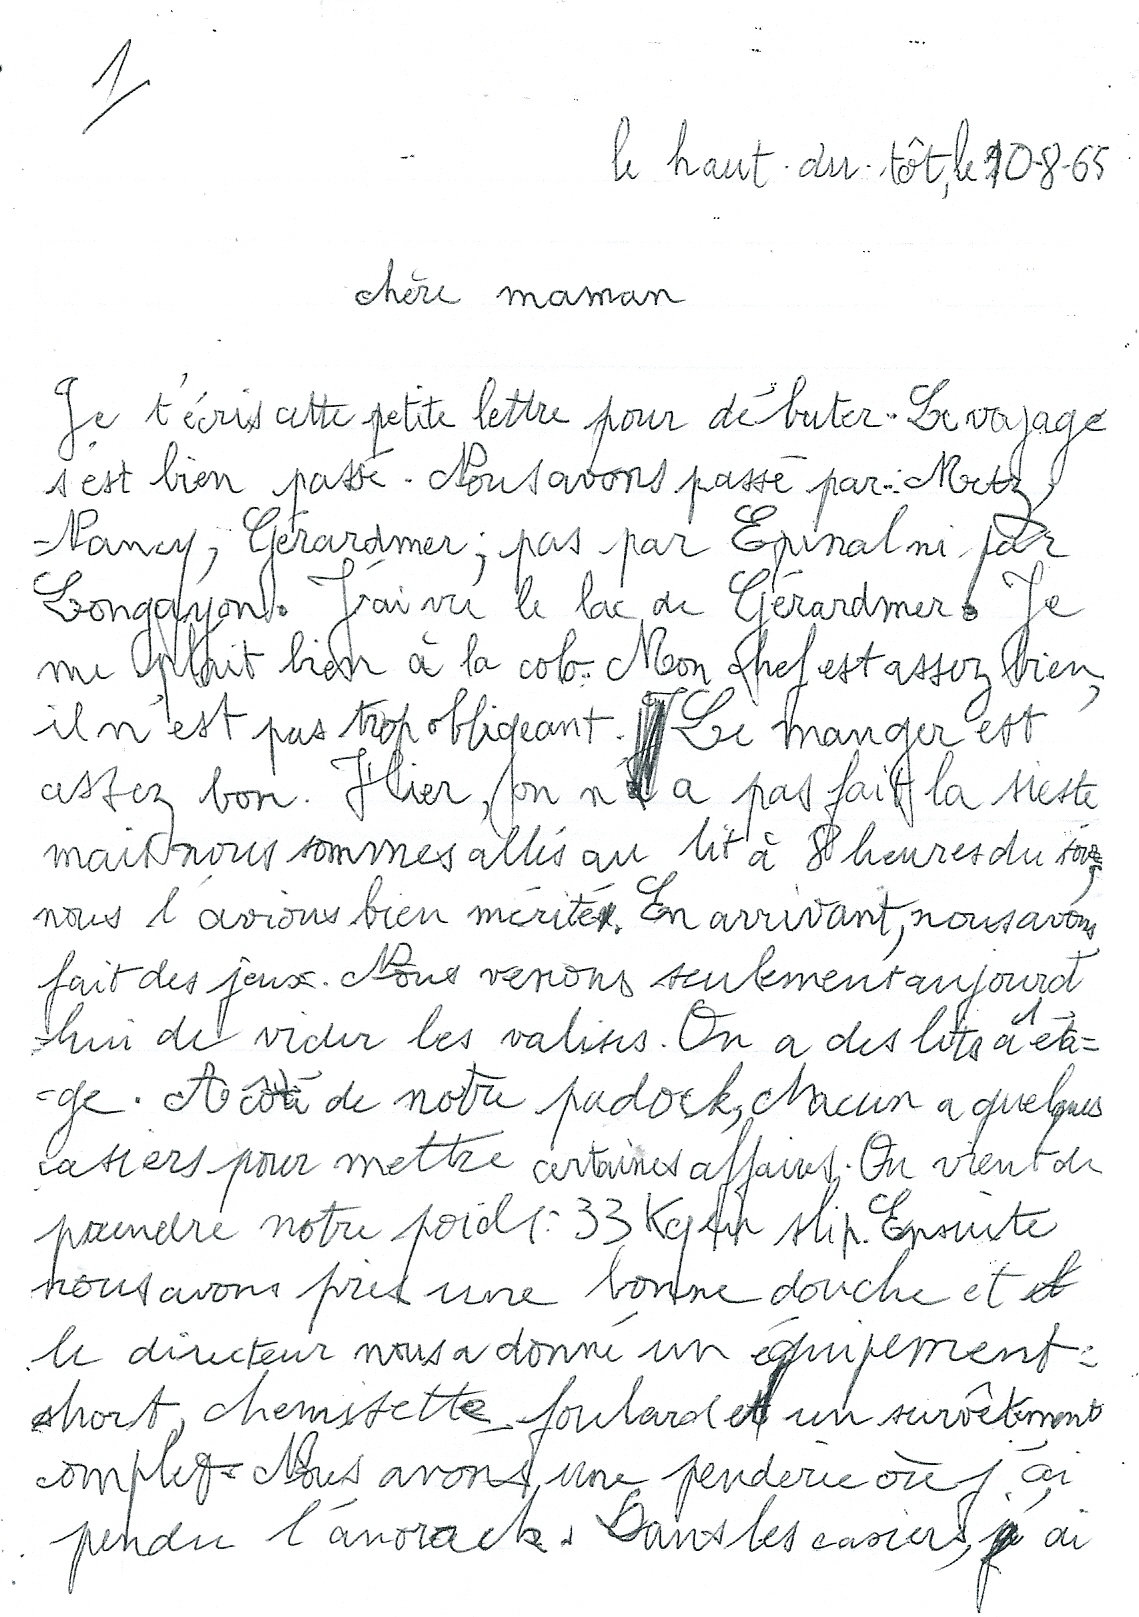 1
le haut-du-tôt, le 10-8-65
chère maman
Je t'écris cette petite lettre pour débuter. Le voyage
s'est bien passé. Nous avons passé par: Metz,
Nancy, Gérardmer; pas par Epinal ni par
Longuyon. J'ai vu le lac de Gérardmer. Je
me plait bien à la colo. Mon chef est assez bien,
il n'est pas trop obligeant. Le manger est
assez bon. Hier, on n'a pas fait la sieste
mais nous sommes allés au lit à 8 heures du soir,
nous l'avions bien mérité. En arrivant, nous avons
fait des jeux. Nous venons seulement aujourd'
-hui de vider les valises. On a des lits à éta-
-ge. A coté de notre padock, chacun a quelques
casiers pour mettre certaines affaires. On vient de
prendre notre poids: 33 Kg en slip. Ensuite
nous avons pris une bonne douche et
le directeur nous a donné un équipement:
short, chemisette, foulard et un survêtement
complet. Nous avons une penderie où j'ai
pendu l'anorack. Dans les casiers, j'ai